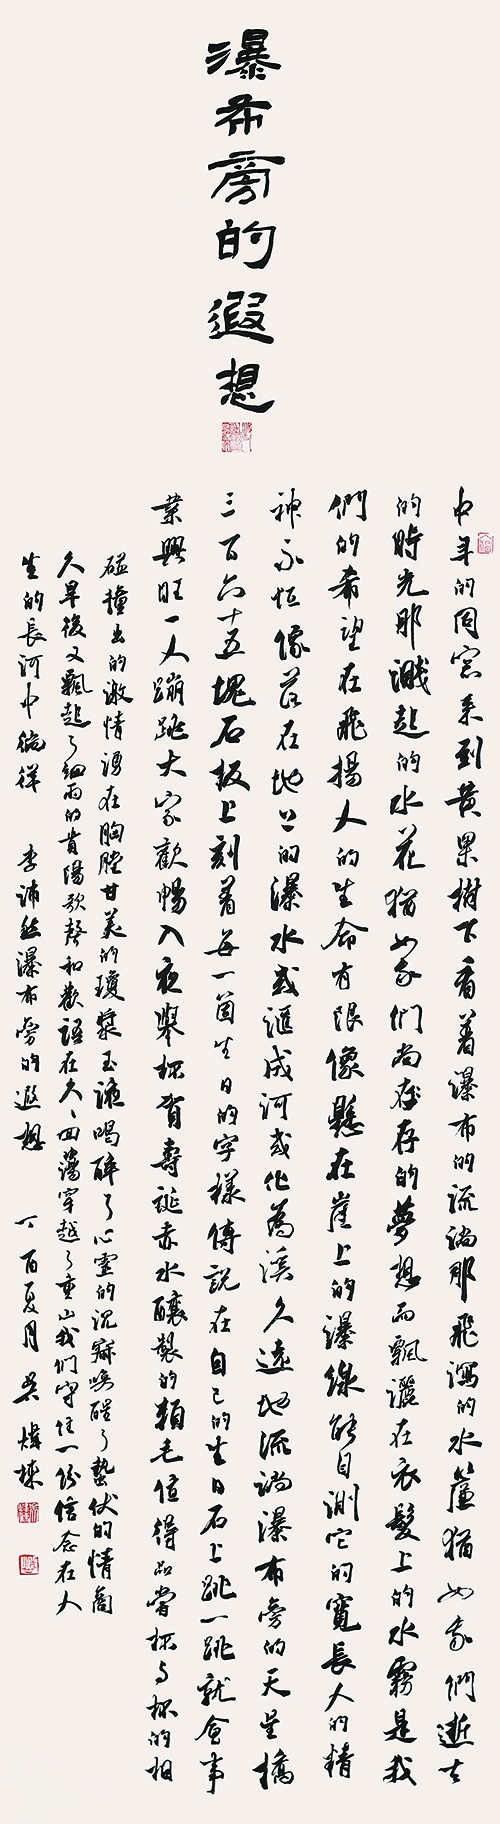 瀑布旁的遐想
中年的同窗来到黄果樹下看着瀑布的流淌那飛瀉的水簾猶如我們逝去
的時光那濺起的水花猶如我們尚在存的夢想而飄灑在衣髮上的水霧是我
們的希望在飛揚人的生命有限像懸在崖上的瀑線能目測它的寬長人的精
神永恒像落在地上的瀑水或滙成河或化為溪久遠地流淌瀑布旁的天星橋
三百六十五塊石板上刻着每一個生日的字樣傳説在自己的生日石上跳一跳就會事
業興旺一人蹦跳大家歡暢入夜舉杯賀壽誕赤水釀製的賴毛值得品嘗杯与杯的相
磕撞出的激情湧在胸膛甘美的瓊漿玉液喝醉了心靈的沉寂唤醒了蟄伏的情商
久旱後又飄起了細雨的貴陽歌聲和歡語在久久回蕩穿越了重山我们守住一份信念在人
生的長河中徜徉 李沛然瀑布旁的遐想 丁酉夏月 吴煒棟